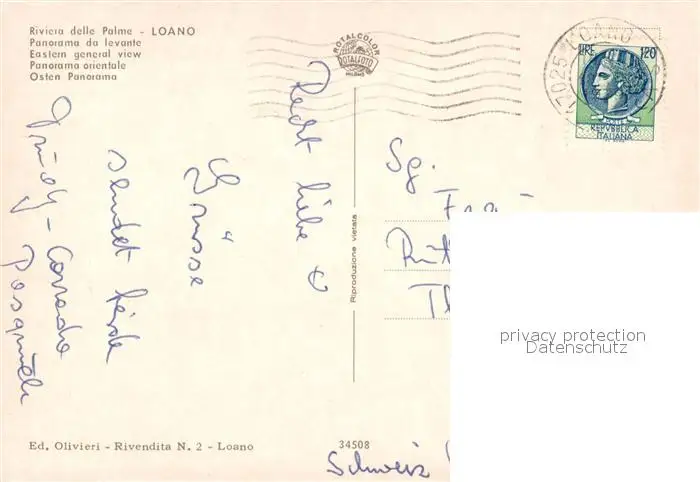 Riviera delle Palme - LOANO
Panorama da levante
Eastern general view
Panorama orientale
Osten Panorama
ROTALCOLOR
ROTALFOTO
MILANO
17025 LOANO
LIRE 120
REPVBBLICA
ITALIANA
Recht liebe
Grüsse
sendet
Trudy - Corrado
Riproduzione vietata
privacy protection
Datenschutz
Ed. Olivieri - Rivendita N. 2 - Loano
34508
Schweiz